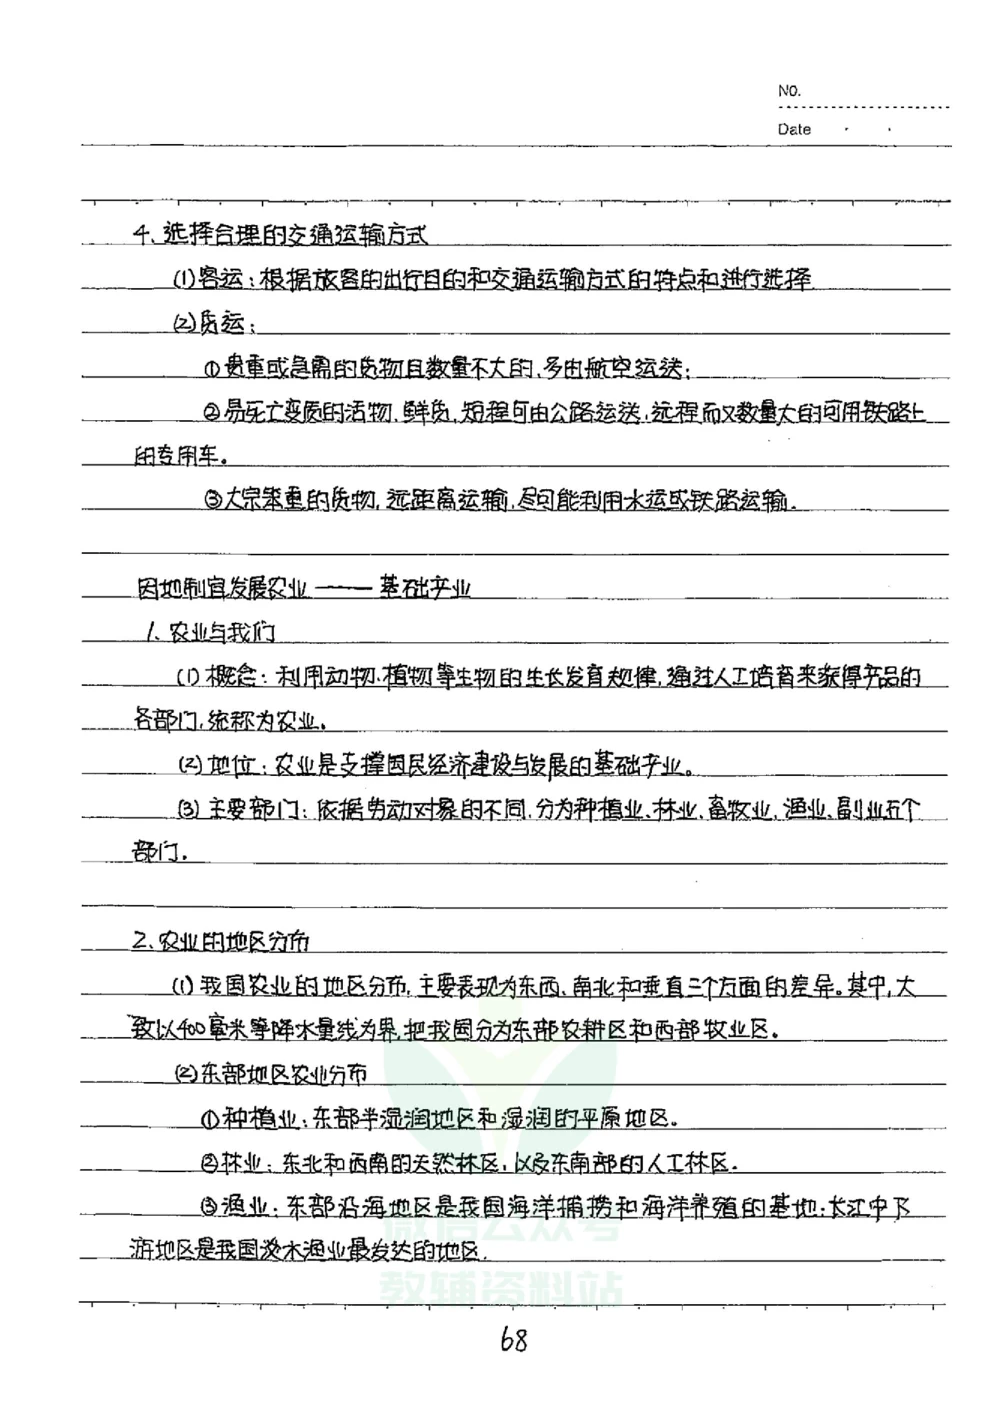 NO.
Date
4、选择合理的交通运输方式
(1)客运：根据旅客的出行目的和交通运输方式的特点和进行选择
(2)货运：
①贵重或急需的货物且数量不大的，多由航空运送；
②易死亡变质的活物，鲜货，短程可由公路运送，远程而又数量大的可用铁路上
的专用车。
③大宗笨重的货物，远距离运输，尽可能利用水运或铁路运输。
因地制宜发展农业——基础产业
1、农业与我们
(1)概念：利用动物、植物等生物的生长发育规律，通过人工培育来获得产品的
各部门，统称为农业。
(2)地位：农业是支撑国民经济建设与发展的基础产业。
(3)主要部门：依据劳动对象的不同，分为种植业、林业、畜牧业、渔业、副业五个
部门。
2、农业的地区分布
(1)我国农业的地区分布，主要表现为东西、南北和垂直三个方面的差异。其中，大
致以400毫米等降水量线为界，把我国分为东部农耕区和西部牧业区。
(2)东部地区农业分布
①种植业：东部半湿润地区和湿润的平原地区。
②林业：东北和西南的天然林区，以及东南部的人工林区。
③渔业：东部沿海地区是我国海洋捕捞和海洋养殖的基地；长江中下
游地区是我国淡水渔业最发达的地区。
微信公众号
教辅资料站
68